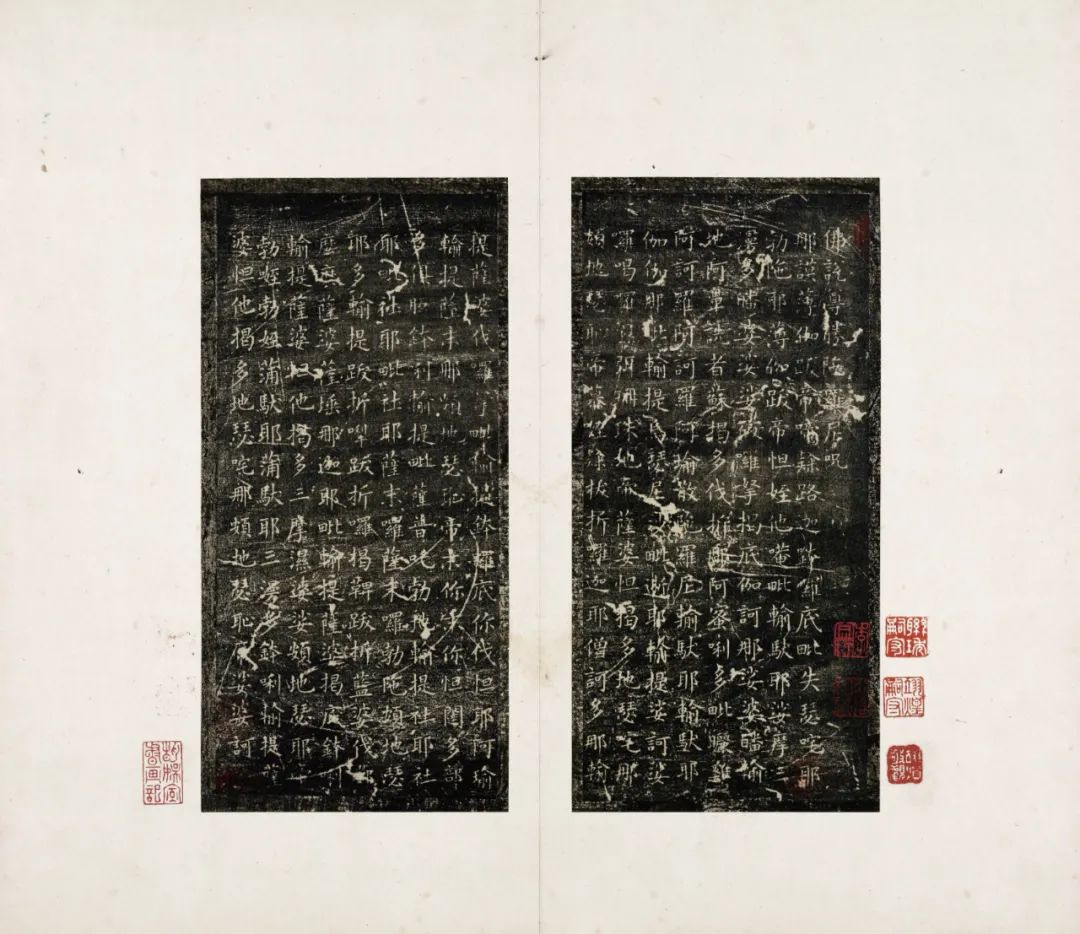 佛說尊勝陀羅尼呪
耶謨薄伽跋帝啼隸路迦鉢囉底毗失瑟吒耶
勃陁耶薄伽跋帝怛姪他唵毗輸馱耶娑摩三
漫多皤娑娑破羅拏揭底伽訶那娑婆皤輸
地阿鼻詵者蘇揭多伐折那阿蜜唎多毗曬雞
阿訶羅阿訶羅阿瑜散陁羅尼輸馱耶輸馱耶
伽伽那毗輸提烏瑟尼沙毗逝耶輸提娑訶娑
囉喝囉濕弭珊珠地帝薩婆怛揭多地瑟吒那
頞地瑟恥帝慕姪隸拔折囉迦耶僧訶多那輸
提薩婆伐囉拏毗輸提鉢囉底你伐怛耶阿瑜
輸提薩末那頞地瑟恥帝末你末你怛闥多部
多俱胝鉢利輸提毗薩普吒勃地輸提社耶社
耶毗社耶毗社耶薩末囉薩末囉勃陁頞地瑟
恥多輸提跋折囉跋折囉揭鞞跋折藍婆伐都
麼麼薩婆薩埵那迦耶毗輸提薩婆揭底鉢唎
輸提薩婆怛他揭多三摩濕婆娑頞地瑟恥帝
勃姪勃姪蒲馱耶蒲馱耶三漫多鉢唎輸提薩
婆怛他揭多地瑟吒那頞地瑟恥帝娑婆訶